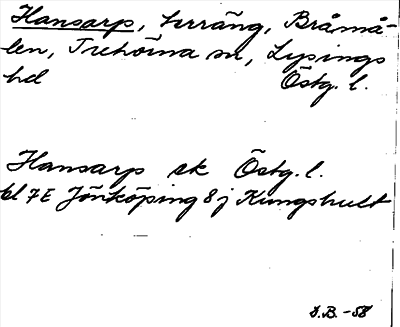 Hansarp, terräng, Bråmå-
len, Trehörna sn, Lysings
hd Östg. l.
Hansarp ek Östg. l.
bl 7E Jönköping 8j Kungshult
S.B. -58